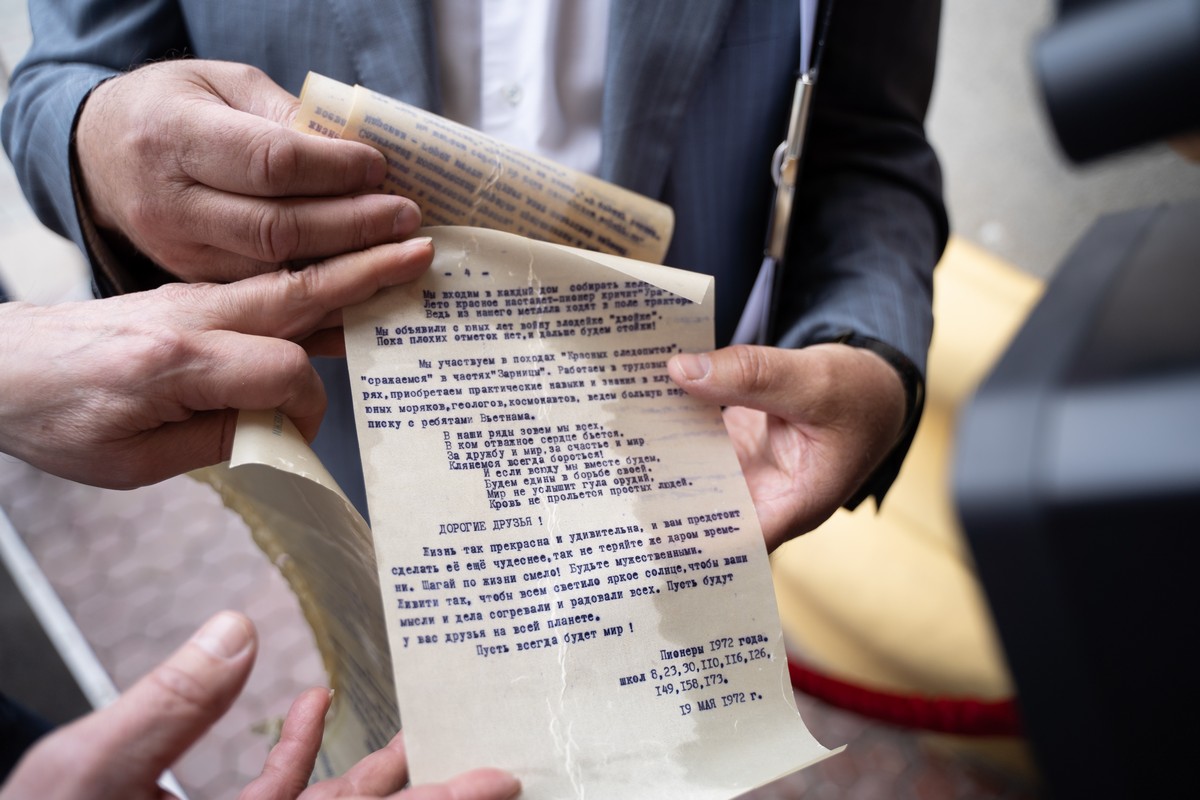 - 4 -
Мы входим в каждый дом собирать
Лето красное настает-пионер кричит"Ура!
Ведь из нашего металла ходят в поле трактор
Мы объявили с юных лет войну злодейке "двойке".
Пока плохих отметок нет,и дальше будем стойки!
Мы участвуем в походах "Красных следопытов",
"сражаемся" в частях"Зарницы". Работаем в трудовых
рях,приобретаем практические навыки и знания в
юных моряков,геологов,космонавтов, ведем большую
писку с ребятами Вьетнама.
В наши ряды зовем мы всех,
В ком отважное сердце бьется.
За дружбу и мир,за счастье и мир
Клянемся всегда бороться!
И если всюду мы вместе будем,
Будем едины в борьбе своей.
Мир не услышит гула орудий.
Кровь не прольется простых людей.
ДОРОГИЕ ДРУЗЬЯ !
Жизнь так прекрасна и удивительна, и вам предстоит
сделать её ещё чудеснее,так не теряйте же даром време-
ни. Шагай по жизни смело! Будьте мужественными.
Живите так, чтобы всем светило яркое солнце,чтобы ваши
мысли и дела согревали и радовали всех. Пусть будут
у вас друзья на всей планете.
Пусть всегда будет мир !
Пионеры 1972 года.
школ 8,23,30,110,116,126,
149,158,173.
19 МАЯ 1972 г.